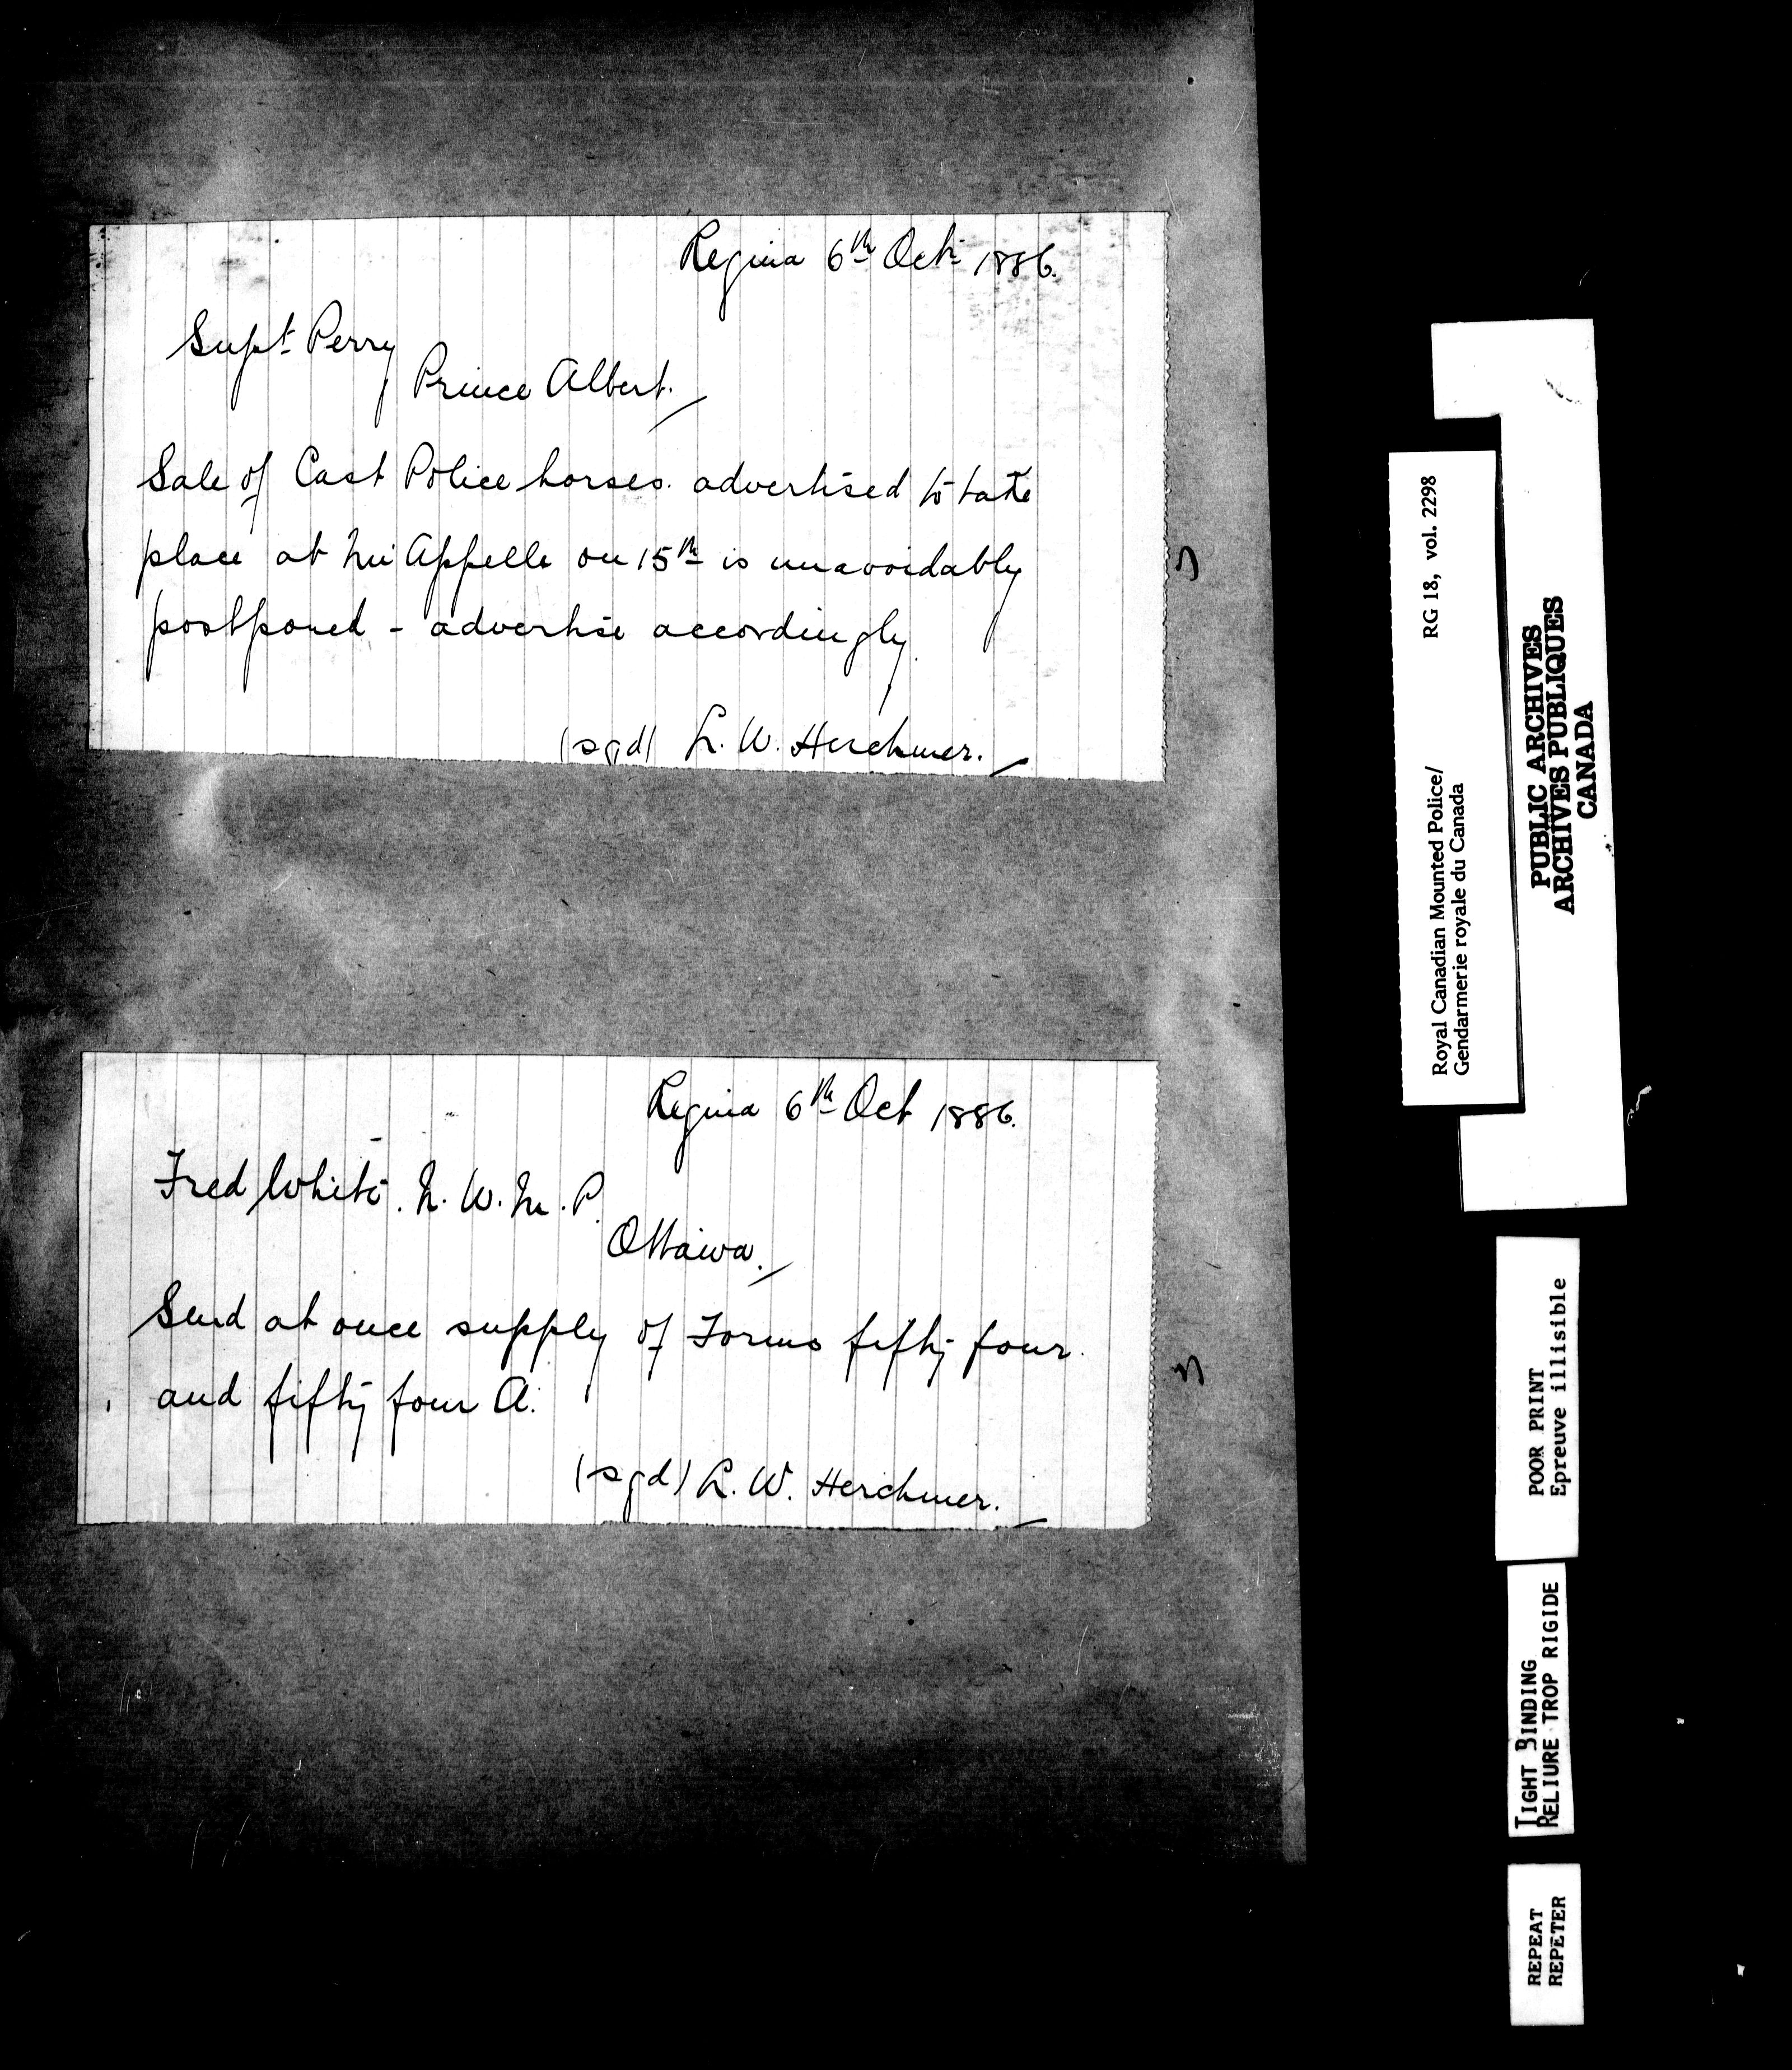 Regina 6th Oct 1886.
Supt Perry
Prince Albert.
Sale of Cast Police horses. advertised to take
place at Qu'Appelle on 15th is unavoidably
postponed - advertise accordingly.
(sgd) L. W. Herchmer.
Regina 6th Oct 1886.
Fred White. N. W. M. P.
Ottawa.
Send at once supply of Forms fifty four
and fifty four A.
(sgd) L. W. Herchmer.
Royal Canadian Mounted Police/ RG 18, vol. 2298
Gendarmerie royale du Canada
PUBLIC ARCHIVES
ARCHIVES PUBLIQUES
CANADA
POOR PRINT
Epreuve illisible
TIGHT BINDING
RELIURE TROP RIGIDE
REPEAT
REPETER